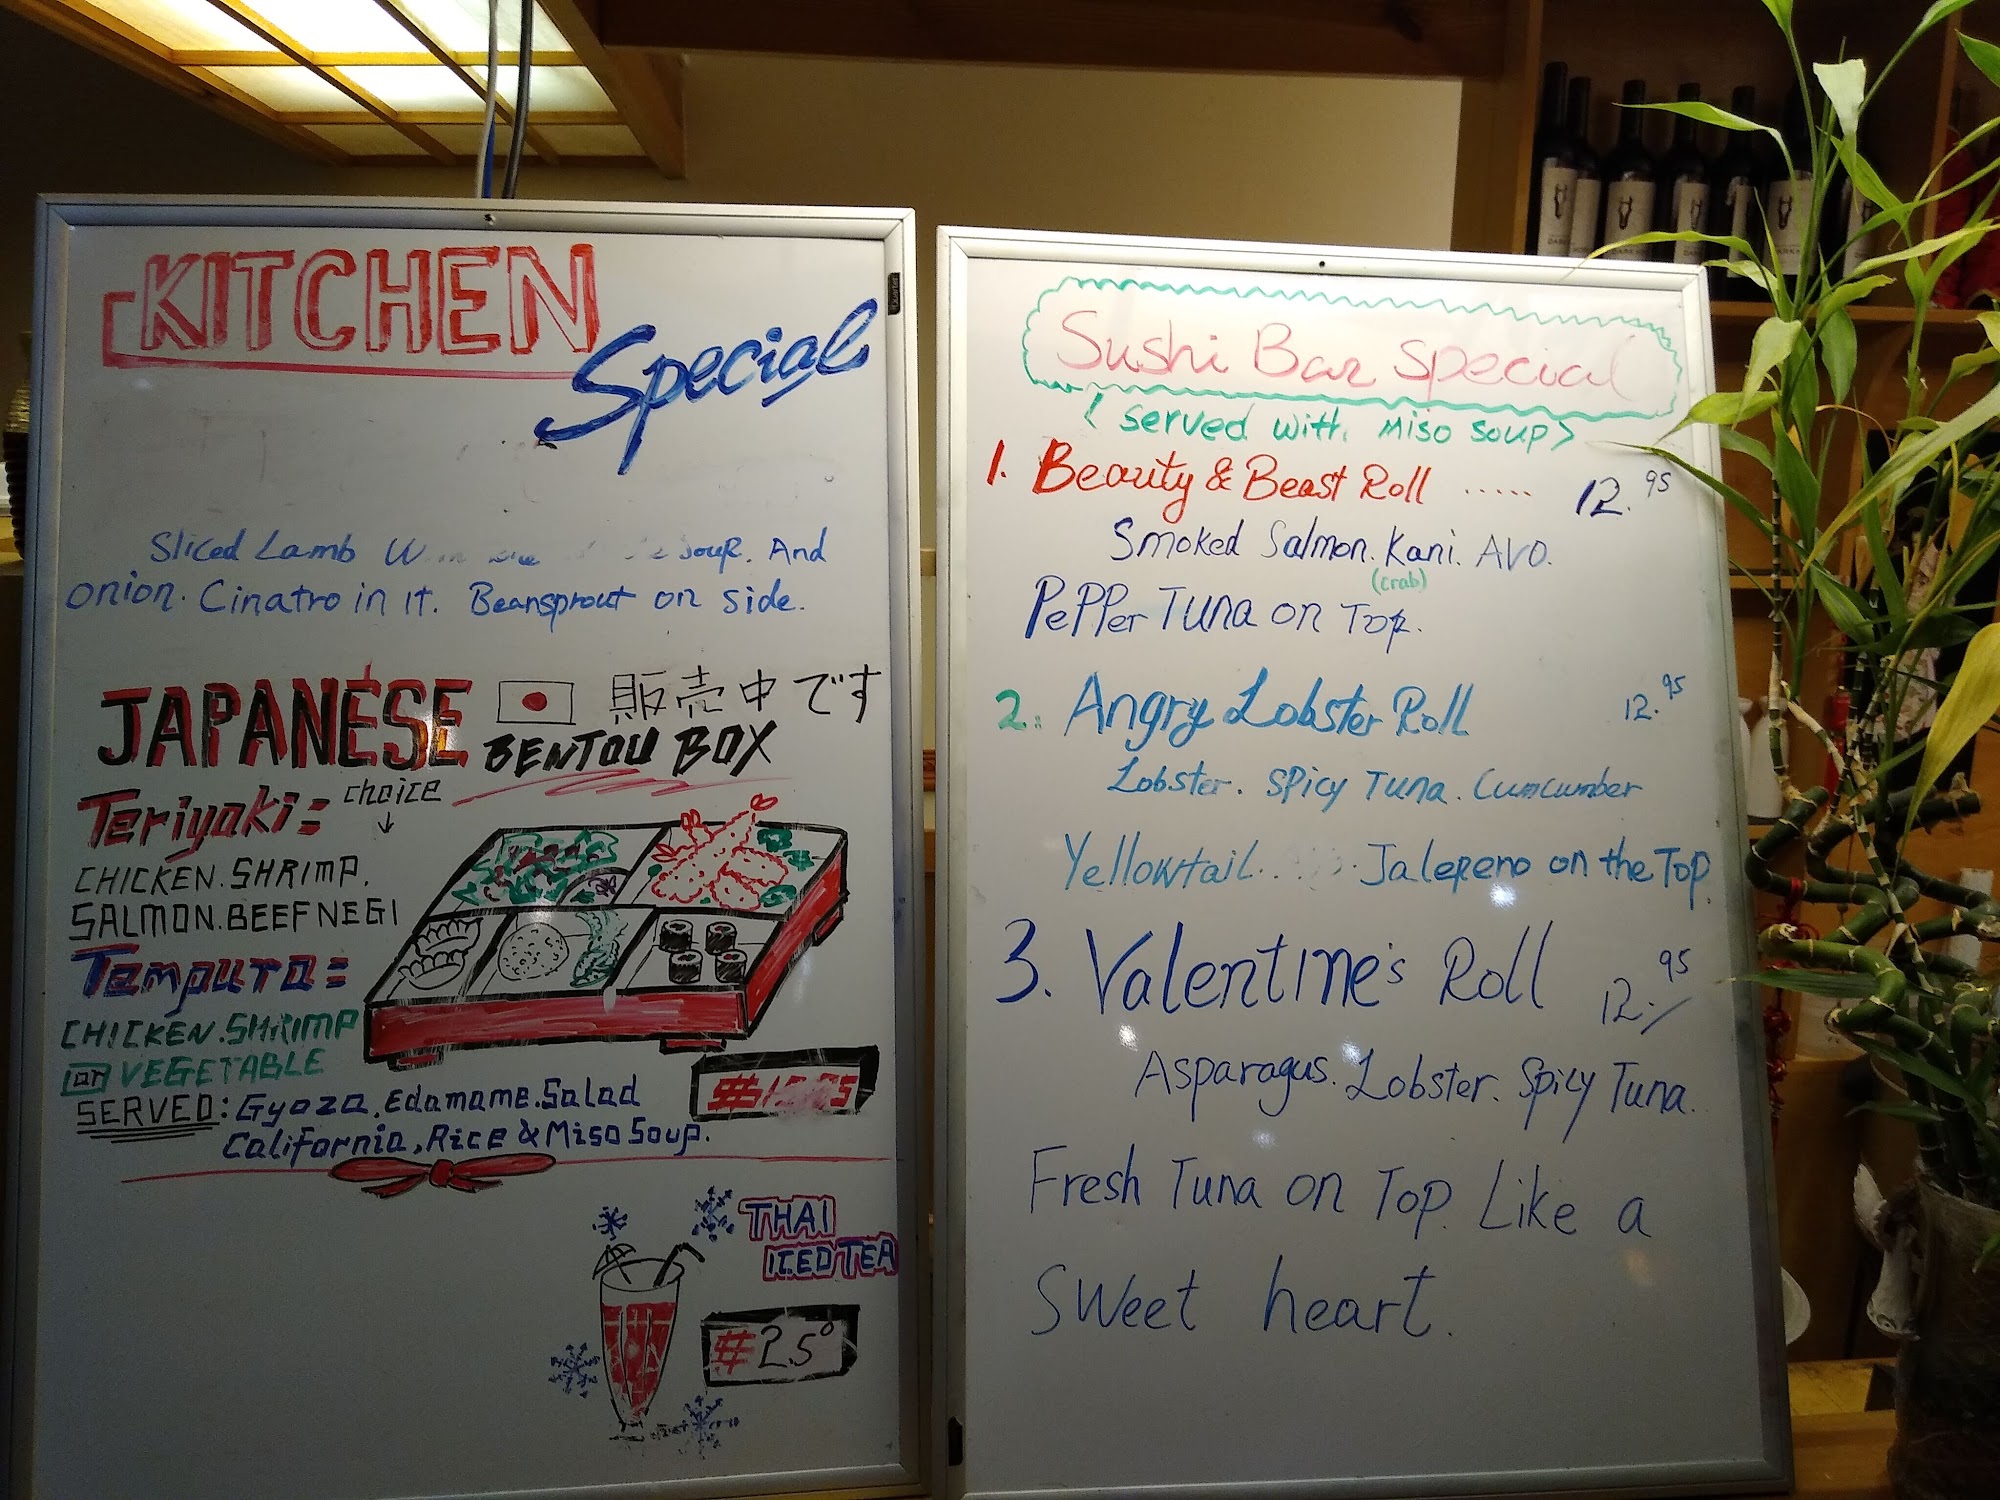 KITCHEN
Special
Sliced Lamb Soup. And
onion. Cinatro in it. Beansprout on side.
JAPANESE 販売中です
BENTOU BOX
Teriyaki= choice
CHICKEN. SHRIMP.
SALMON. BEEF NEGI
Tempura=
CHICKEN. SHRIMP
or VEGETABLE
SERVED: Gyoza, Edamame. Salad
California, Rice & Miso Soup.
THAI
ICED TEA
Sushi Bar Special
< served with Miso soup>
1. Beauty & Beast Roll ..... 12.95
Smoked Salmon. Kani. AVO.
(crab)
Pepper Tuna on Top.
2. Angry Lobster Roll 12.95
Lobster. Spicy Tuna. Cumcumber
Yellowtail... Jalepeno on the Top
3. Valentine's Roll 12.95
Asparagus. Lobster. Spicy Tuna.
Fresh Tuna on Top. Like a
Sweet heart.